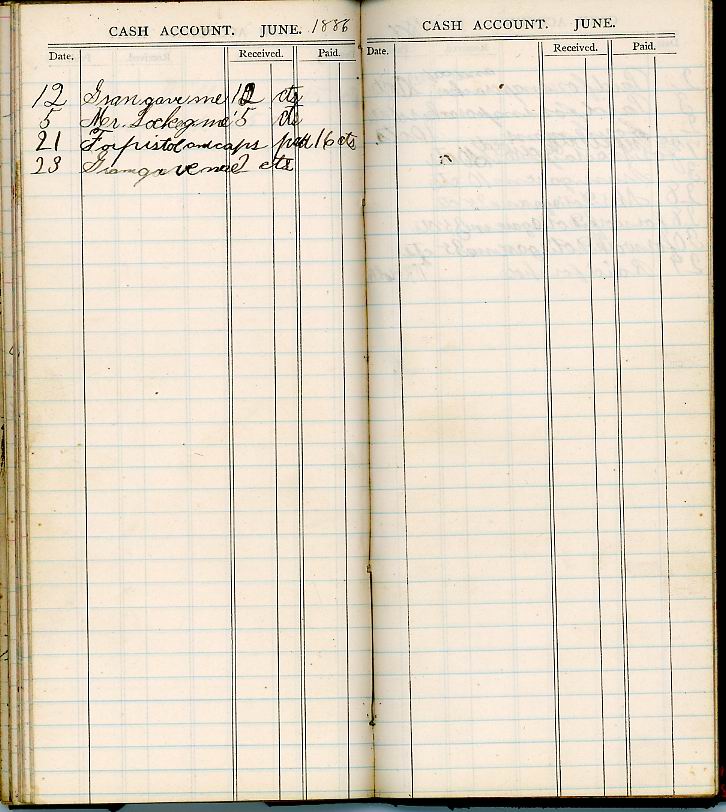 CASH ACCOUNT. JUNE. 1886
Date. Received. Paid.
12 Gran gave me 12 cts
5 Mr. Lock g me 5 cts
21 For pistol an caps paid 16 cts
23 Gran gave me 2 cts
CASH ACCOUNT. JUNE.
Date. Received. Paid.